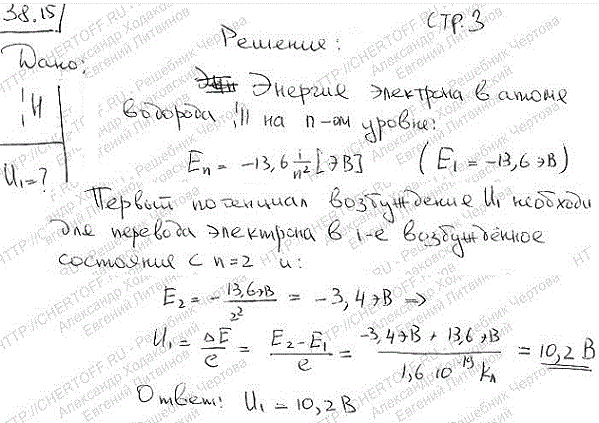 38.15
стр. 3
Дано:
Решение:
¹₁H
U₁ = ?
Энергия электрона в атоме
водорода ¹₁H на n-ом уровне:
Eₙ = -13,6 1/n² [эВ] (E₁ = -13,6 эВ)
Первый потенциал возбуждение U₁ необходи
для перевода электрона в 1-е возбуждённое
состояние с n=2 и:
E₂ = - 13,6 эВ / 2² = -3,4 эВ ⇒
U₁ = ΔE / e = E₂ - E₁ / e = -3,4 эВ + 13,6 эВ / 1,6 · 10⁻¹⁹ Кл = 10,2 В
Ответ: U₁ = 10,2 В
HTTP://CHERTOFF.RU - Решебник Чертова
Александр Ходаковский
Евгений Литвинов